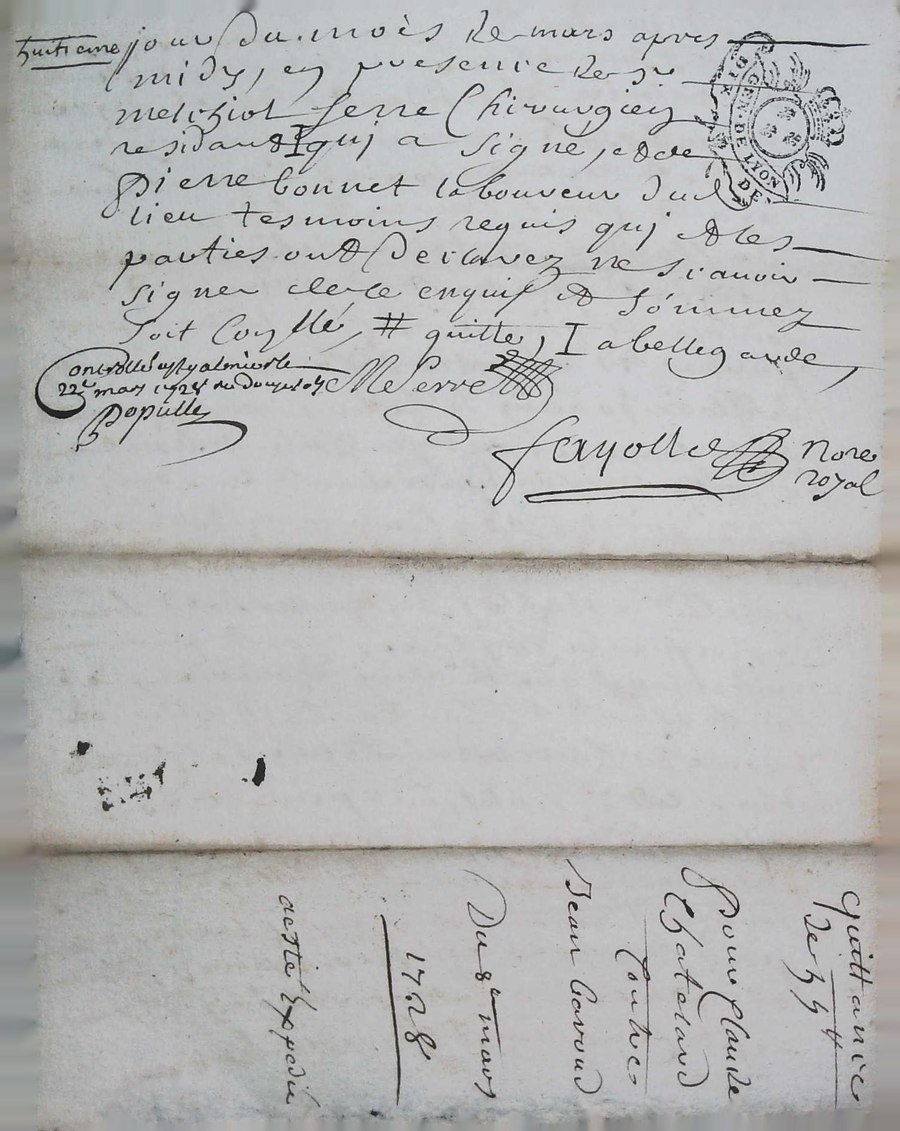 huitieme jour du mois de mars apres
midy, en presence de sr
melchiol serre Chirurgien
residant I qui a signé, et de
pierre bonnet laboureur dud
lieu tesmoins requis qui et les
parties ont declarez ne scavoir
signer de ce enquis et sommez
soit # quitte, I a bellegarde,
Controllé
22e mars 1728
Populle
MSerre
fayolle Nore
royal
GEN. DE LYON
DE
quittance
de 55lt
pour Claude
Chatelard
Contre
Jean barroud
Du 8e mars
1728
acte Expedié